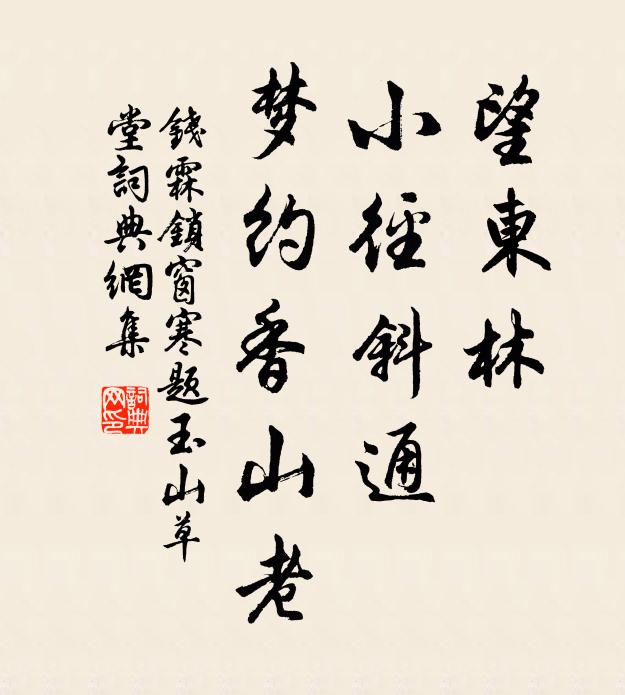 望東林
小徑斜通
梦约香山老
錢霖鎖窗寒题玉山草
堂詞典網集
詞典网印